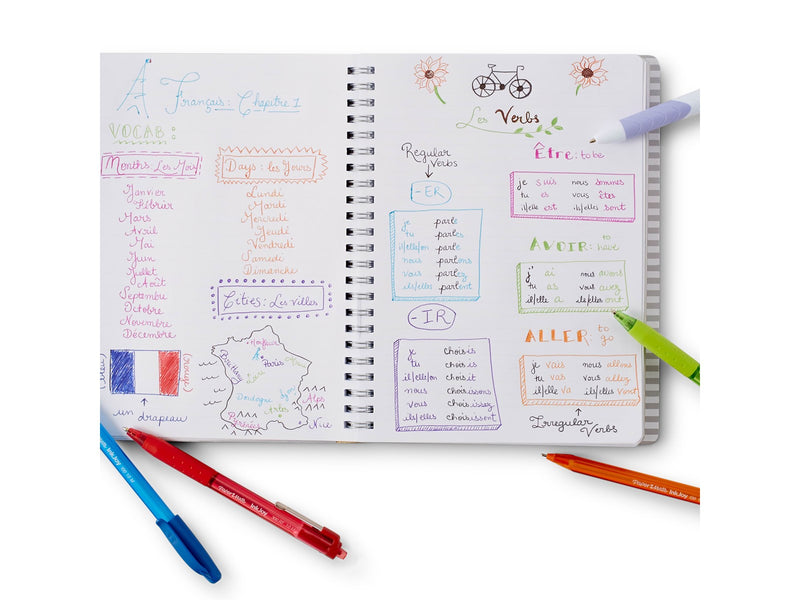 Français: Chapitre 1
VOCAB:
Months: Les Mois
Janvier
Février
Mars
Avril
Mai
Juin
Juillet
Août
Septembre
Octobre
Novembre
Décembre
Days: les Jours
Lundi
Mardi
Mercredi
Jeudi
Vendredi
Samedi
Dimanche
Cities: Les Villes
Paris
Loire
Dordogne
Lyon
Arles
Alps
Nice
(bleu)
un drapeau
Les Verbs
Regular
Verbs
-ER
je parle
tu parles
il/elle/on parle
nous parlons
vous parlez
il/elles parlent
-IR
je choisis
tu choisis
il/elle/on choisit
nous choisissons
vous choisissez
ils/elles choisissent
Être: to be
je suis nous sommes
tu es vous êtes
il/elle est ils/elles sont
AVOIR: to have
j' ai nous avons
tu as vous avez
il/elle a ils/elles ont
ALLER: to go
je vais nous allons
tu vas vous allez
il/elle va ils/elles vont
Irregular
Verbs
Paper Mate InkJoy
Paper Mate InkJoy
Paper Mate InkJoy